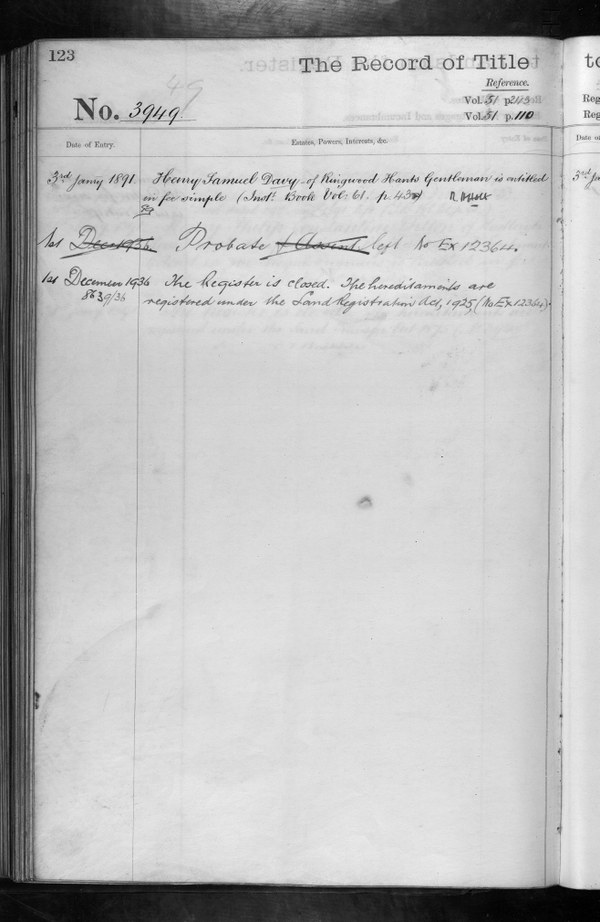 123
The Record of Title
to
49
Reference.
No. 3949.
Vol. 51 p. 243
Reg
Vol. 51 p. 110
Reg
Date of Entry.
Estates, Powers, Interests, &c.
Date o
3rd Jany 1891. Henry Samuel Davy of Ringwood Hants Gentleman is entitled
in fee simple (Inst. Book Vol: 61. p. 43
1st Dec. 1936. Probate & Assent left No Ex 12364.
1st December 1936 The Register is closed. The hereditaments are
8639/36 registered under the Land Registration Act, 1925, (No Ex 12364).
3rd J